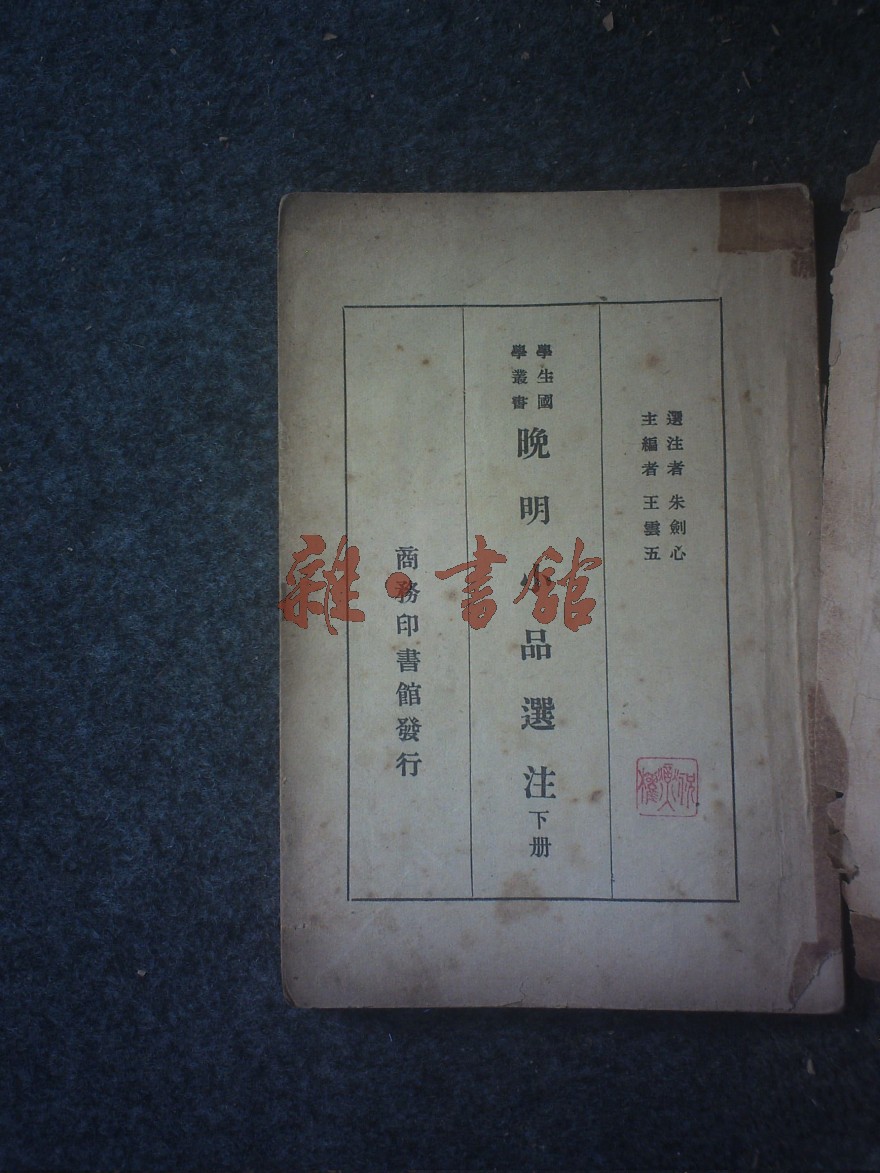 選注者 朱劍心
主編者 王雲五
學生國
學叢書
晚明小品選注 下册
商務印書館發行
雜·書館